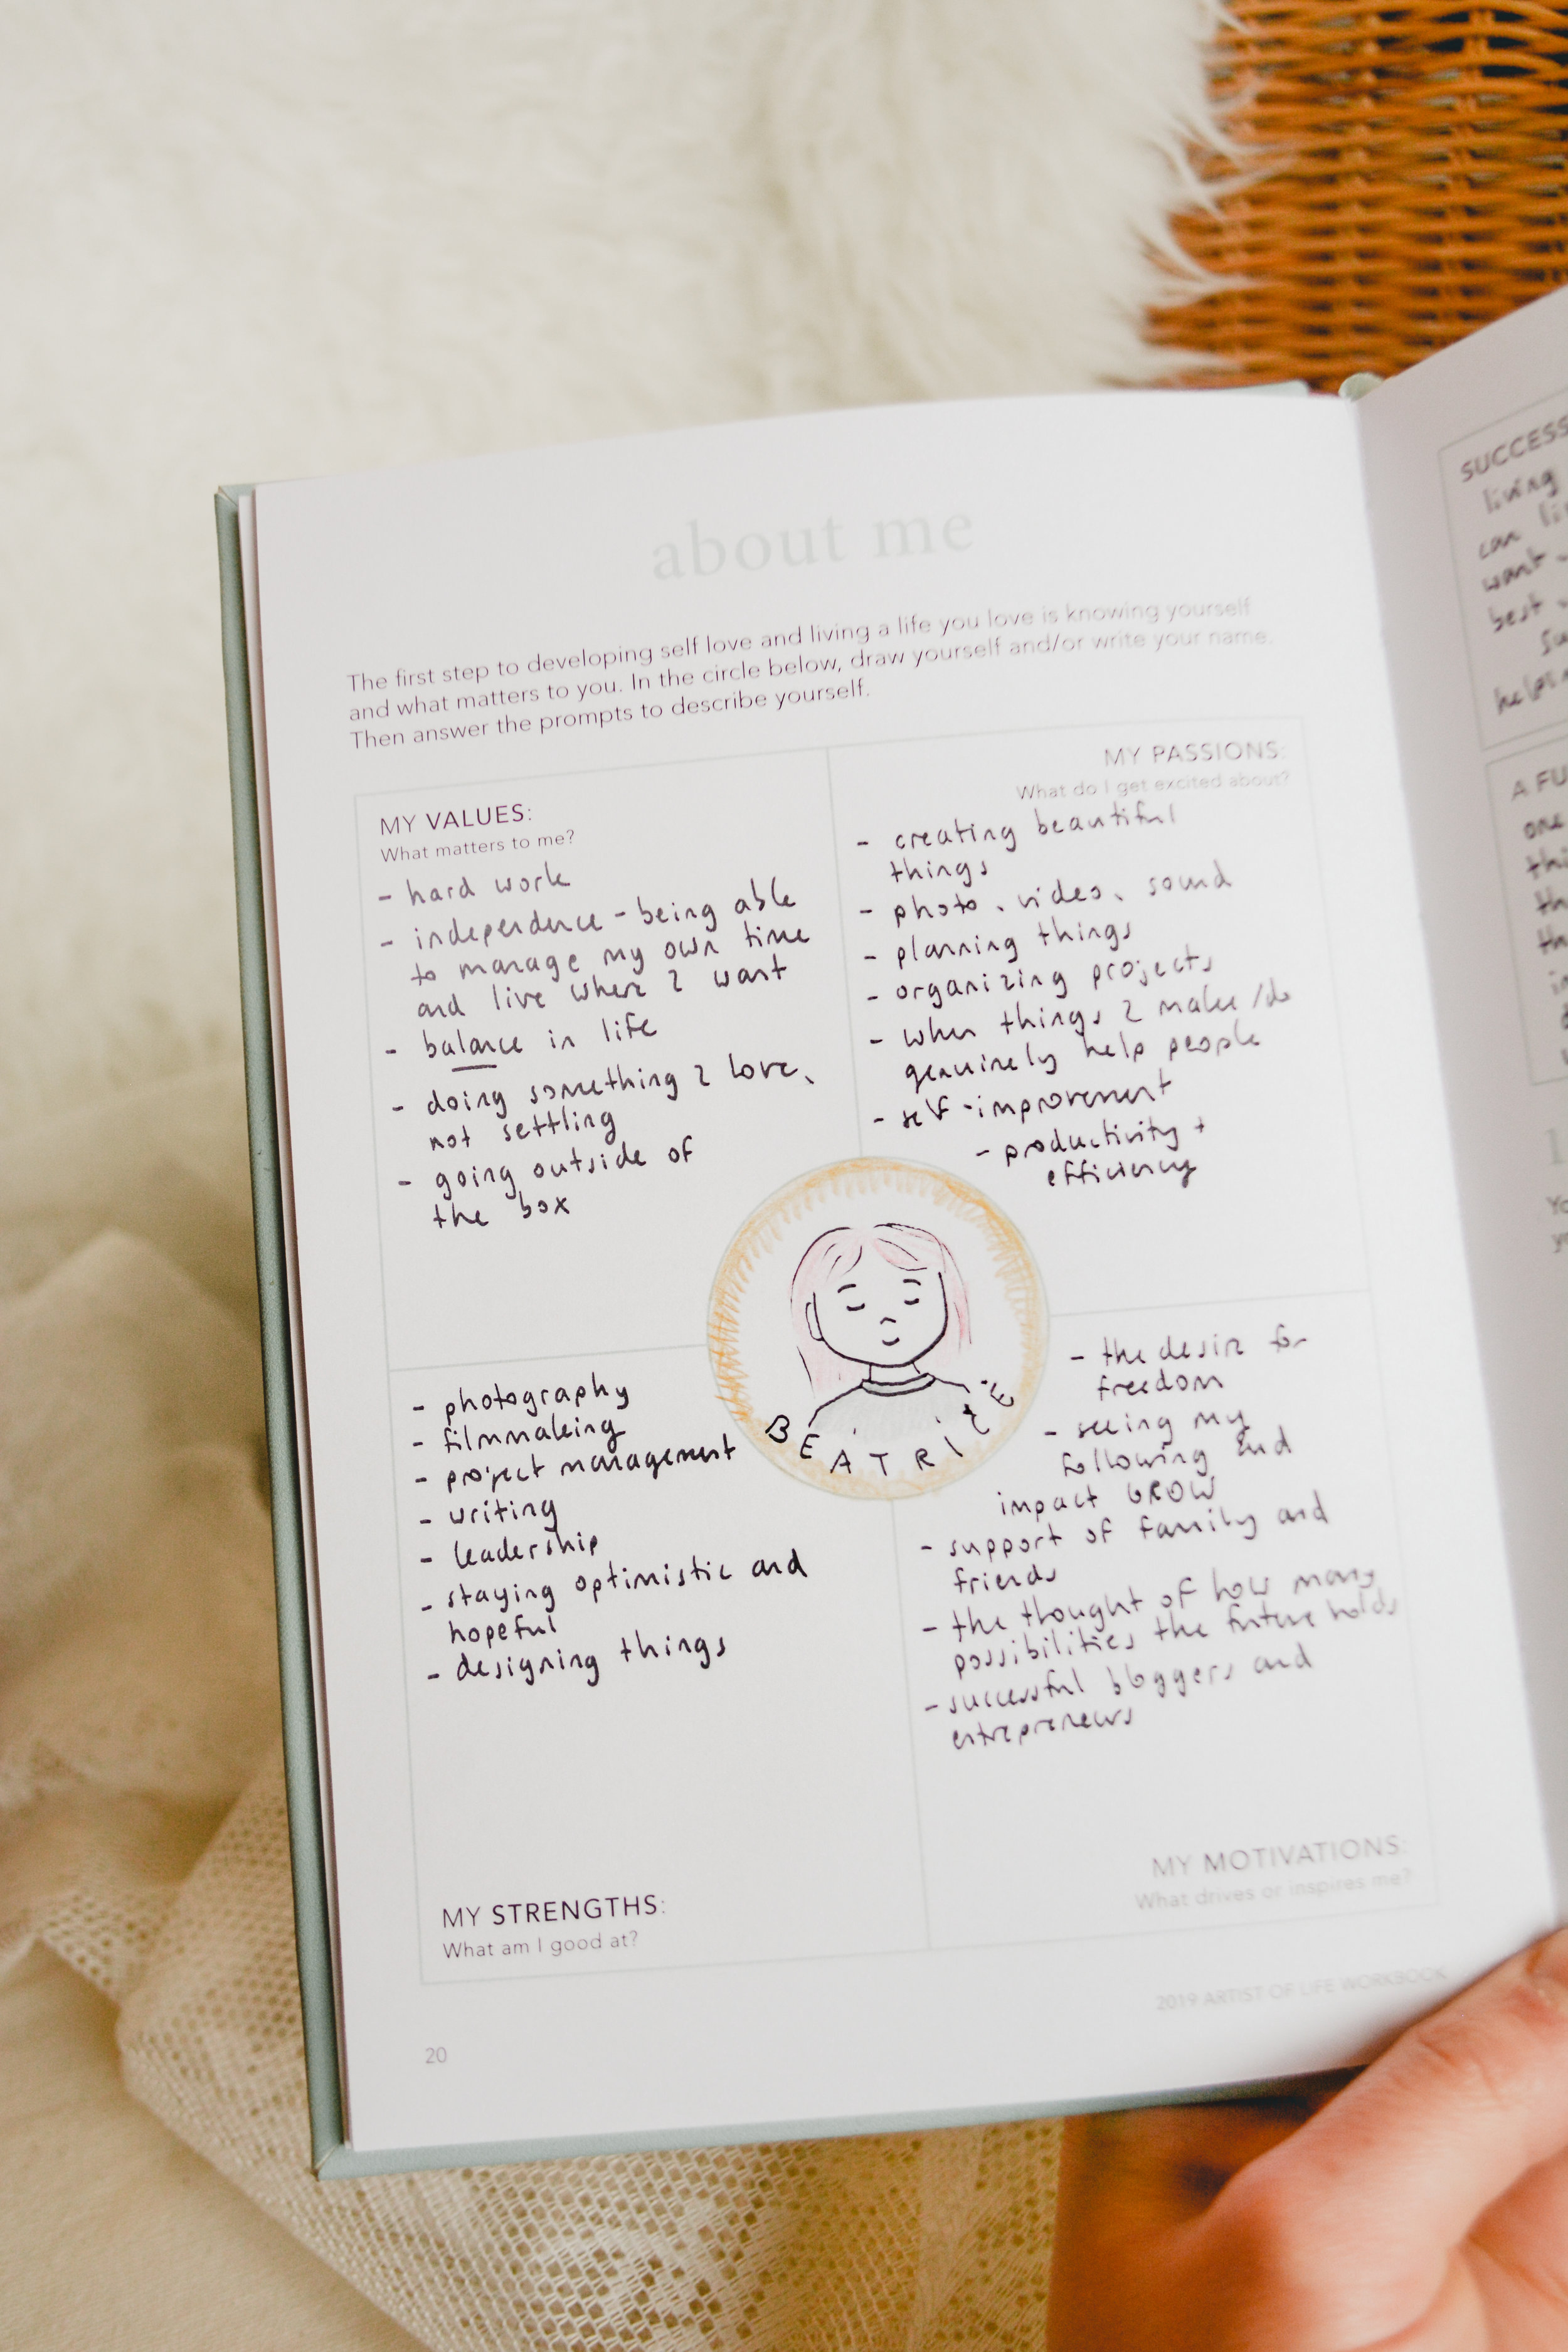 about me
The first step to developing self love and living a life you love is knowing yourself
and what matters to you. In the circle below, draw yourself and/or write your name.
Then answer the prompts to describe yourself.
MY VALUES:
What matters to me?
- hard work
- independence - being able
to manage my own time
and live where I want
- balance in life
- doing something I love,
not settling
- going outside of
the box
MY PASSIONS:
What do I get excited about?
- creating beautiful
things
- photo, video, sound
- planning things
- organizing projects
- when things I make/do
genuinely help people
- self-improvement
- productivity +
efficiency
BEATRICE
- photography
- filmmaking
- project management
- writing
- leadership
- staying optimistic and
hopeful
- designing things
MY STRENGTHS:
What am I good at?
- the desire for
freedom
- seeing my
following and
impact GROW
- support of family and
friends
- the thought of how many
possibilities the future holds
- successful bloggers and
entrepreneurs
MY MOTIVATIONS:
What drives or inspires me?
2019 ARTIST OF LIFE WORKBOOK
20
SUCCESS
living
can
want
best
A FU
one